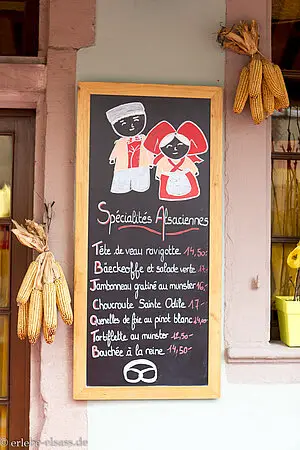 Spécialités Alsaciennes
Tête de veau ravigotte 14,50
Bäeckeoffe et salade verte
Jambonneau gratiné au munster 16,-
Choucroute Sainte Odile 17,-
Quenelles de foie au pinot blanc
Tartiflette au munster 12,50
Bouchée à la reine 14,50
© erlebe-elsass.de